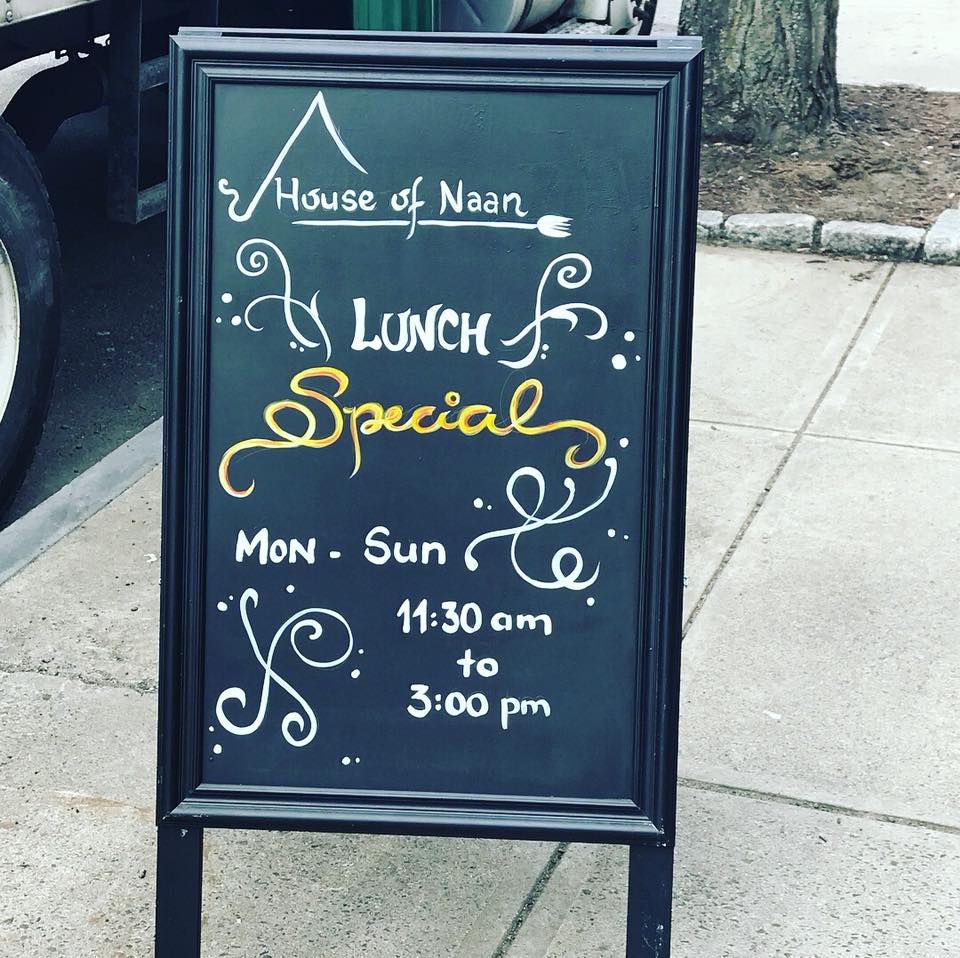 House of Naan
LUNCH
Special
MON - Sun
11:30 am
to
3:00 pm